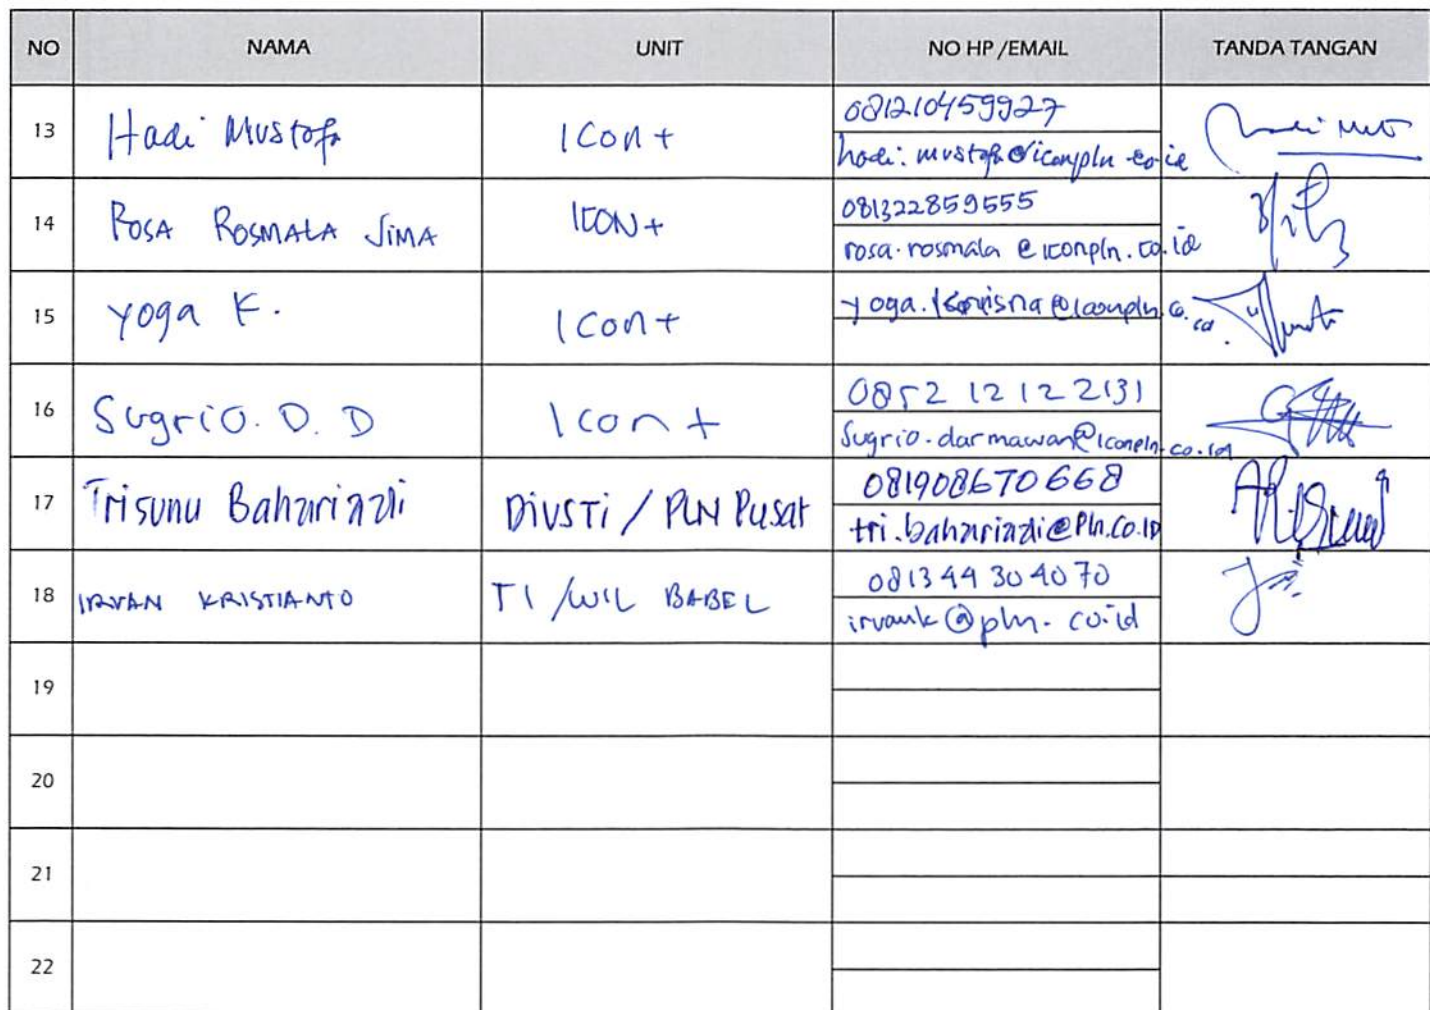 NO NAMA UNIT NO HP /EMAIL TANDA TANGAN
13 Hadi Mustofa Icon+ 081210459927
hadi.mustofa@iconpln.co.id
14 ROSA ROSMALA SIMA ICON+ 081322859555
rosa.rosmala@iconpln.co.id
15 Yoga K. Icon+ yoga.
16 Sugrio. D. D Icon+ 0852 12 12 2131
sugrio.darmawan@iconpln.co.id
17 Trisunu Baharizadi DIVSTI / PLN Pusat 081908670668
18 IRVAN KRISTIANTO TI /WIL BABEL 081344304070
irvank@pln.co.id
19
20
21
22